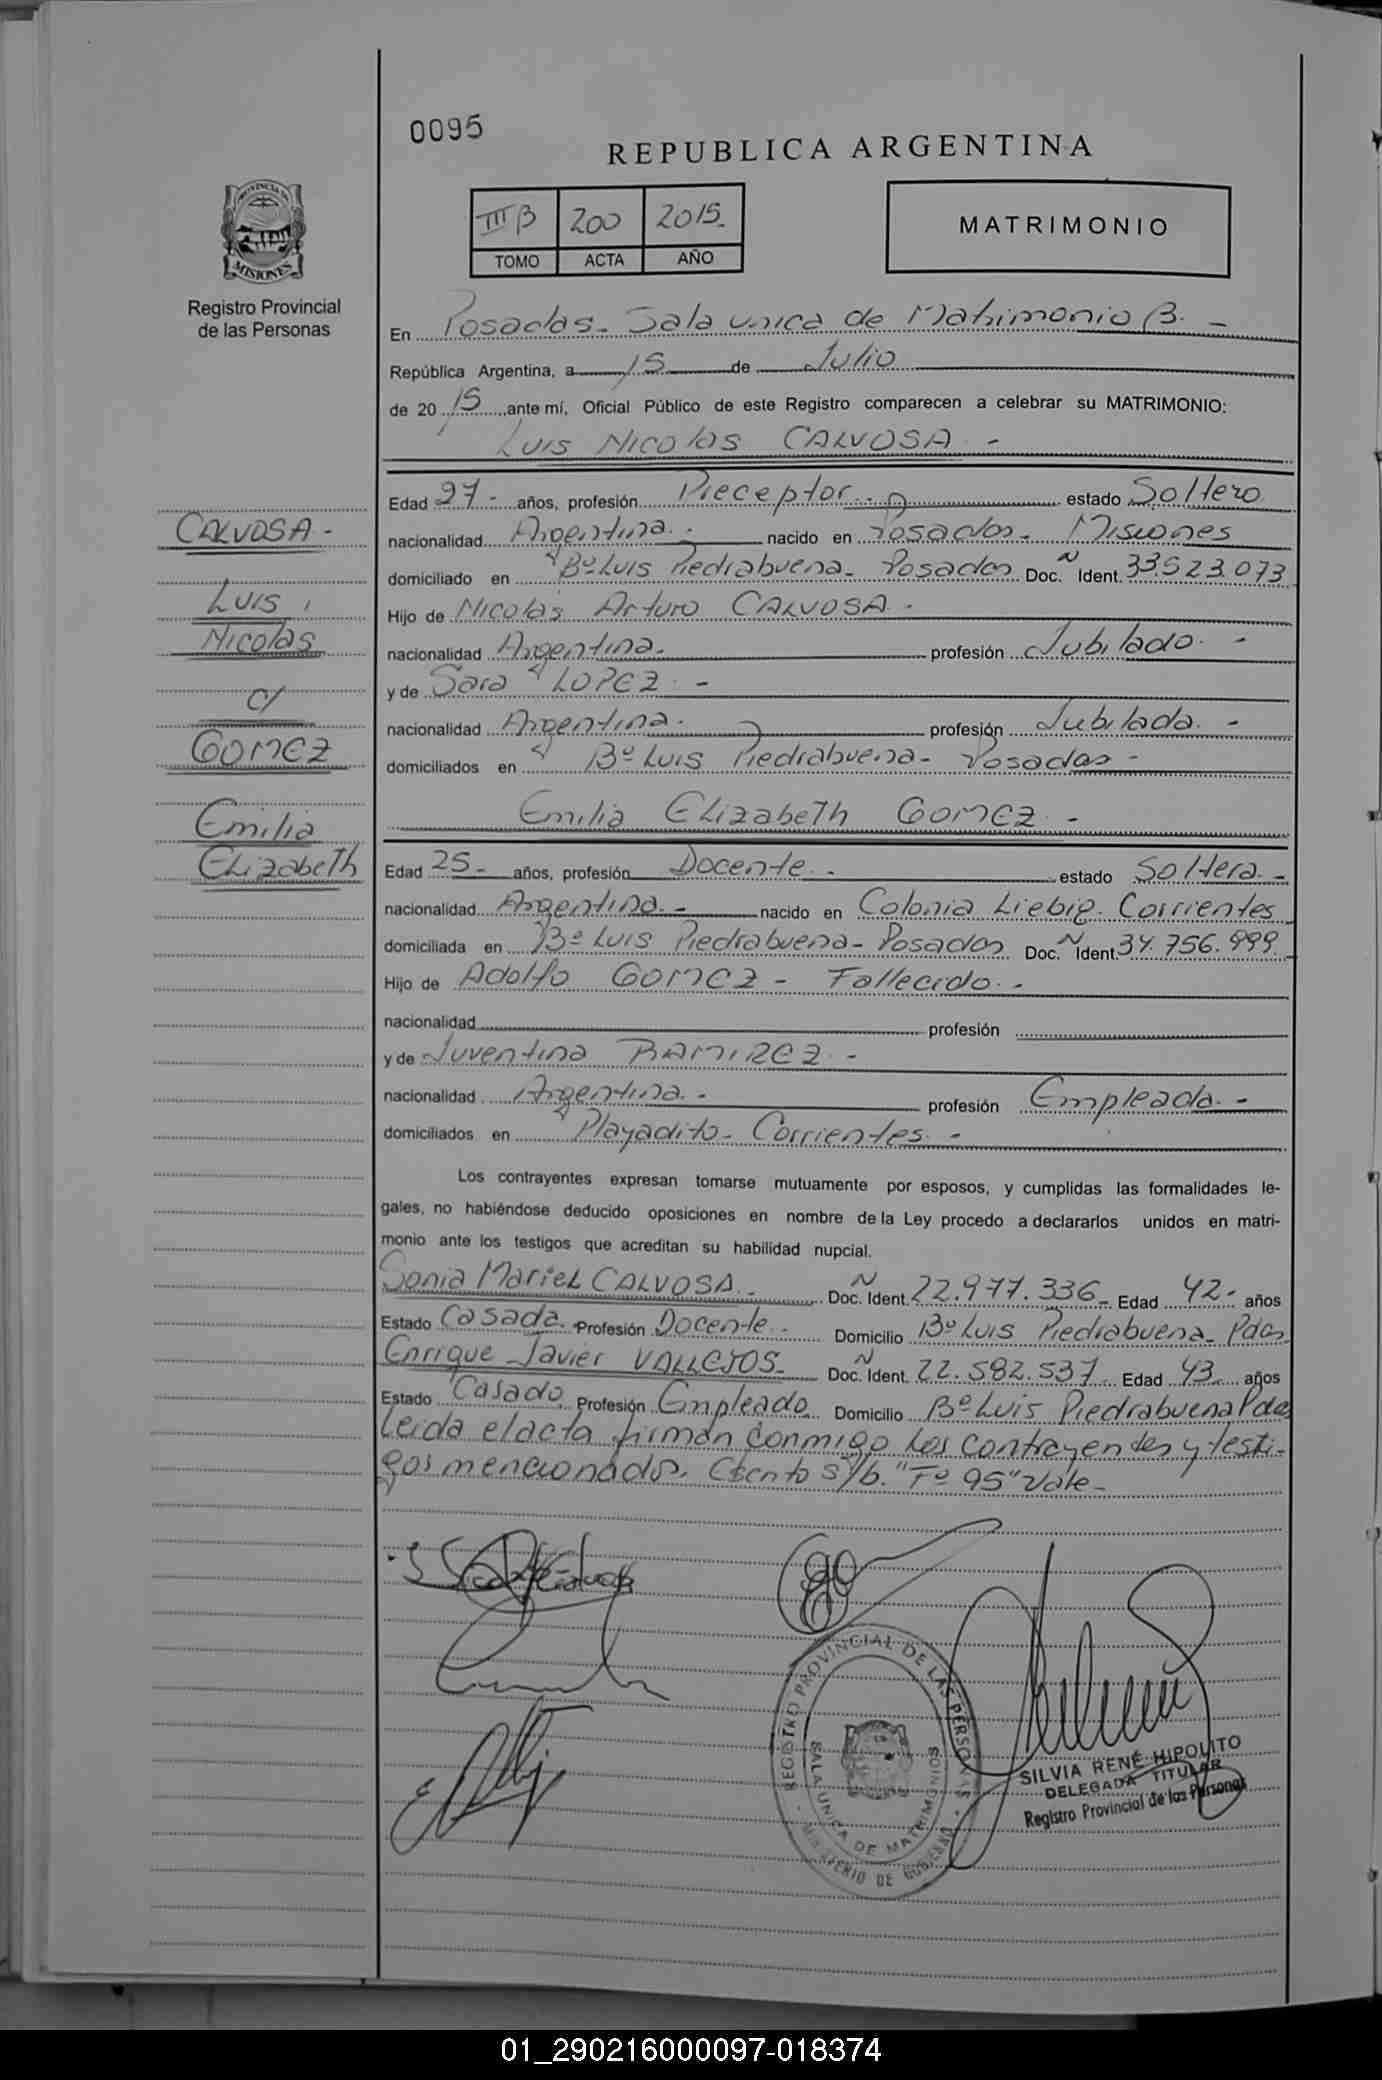 0095
REPUBLICA ARGENTINA
III B 200 2015-
TOMO ACTA AÑO
MATRIMONIO
PROVINCIA DE
MISIONES
Registro Provincial
de las Personas
En Posadas- Sala unica de Matrimonio B. -
República Argentina, a 15 de Julio
de 20 15, ante mí, Oficial Público de este Registro comparecen a celebrar su MATRIMONIO:
Luis Nicolas CALVOSA. -
Edad 27- años, profesión Preceptor.- estado Soltero
nacionalidad Argentina.- nacido en Posadas- Misiones
domiciliado en Bº Luis Piedrabuena- Posadas Doc. Ñ Ident. 33.523.073
Hijo de Nicolas Arturo CALVOSA.-
nacionalidad Argentina- profesión Jubilado.-
y de Sara LOPEZ.-
nacionalidad Argentina.- profesión Jubilada.-
domiciliados en Bº Luis Piedrabuena- Posadas-
Emilia Elizabeth GOMEZ.-
Edad 25- años, profesión Docente.- estado Soltera.-
nacionalidad Argentina.- nacido en Colonia Liebig. Corrientes
domiciliada en Bº Luis Piedrabuena- Posadas Doc. Ñ Ident. 34.756.999.-
Hijo de Adolfo GOMEZ- Fallecido.-
nacionalidad profesión
y de Juventina RAMIREZ.-
nacionalidad Argentina.- profesión Empleada.-
domiciliados en Playadito- Corrientes.-
Los contrayentes expresan tomarse mutuamente por esposos, y cumplidas las formalidades le-
gales, no habiéndose deducido oposiciones en nombre de la Ley procedo a declararlos unidos en matri-
monio ante los testigos que acreditan su habilidad nupcial.
Sonia Mariel CALVOSA.- Doc. Ñ Ident. 22.977.336- Edad 42- años
Estado Casada. Profesión Docente.- Domicilio Bº Luis Piedrabuena- Pdas.
Enrique Javier VALLEJOS- Doc. Ñ Ident. 22.582.537 Edad 43 años
Estado Casado. Profesión Empleado. Domicilio Bº Luis Piedrabuena Pdas
Leida el acta firman conmigo los contrayentes y testi-
gos mencionados. s/b. "Fº 95" Vale-
CALVOSA-
Luis
Nicolas
c/
GOMEZ
Emilia
Elizabeth
REGISTRO PROVINCIAL DE LAS PERSONAS
SALA UNICA DE MATRIMONIOS
MINISTERIO DE GOBIERNO
SILVIA RENÉ HIPOLITO
DELEGADA TITULAR
Registro Provincial de las Personas
01_290216000097-018374